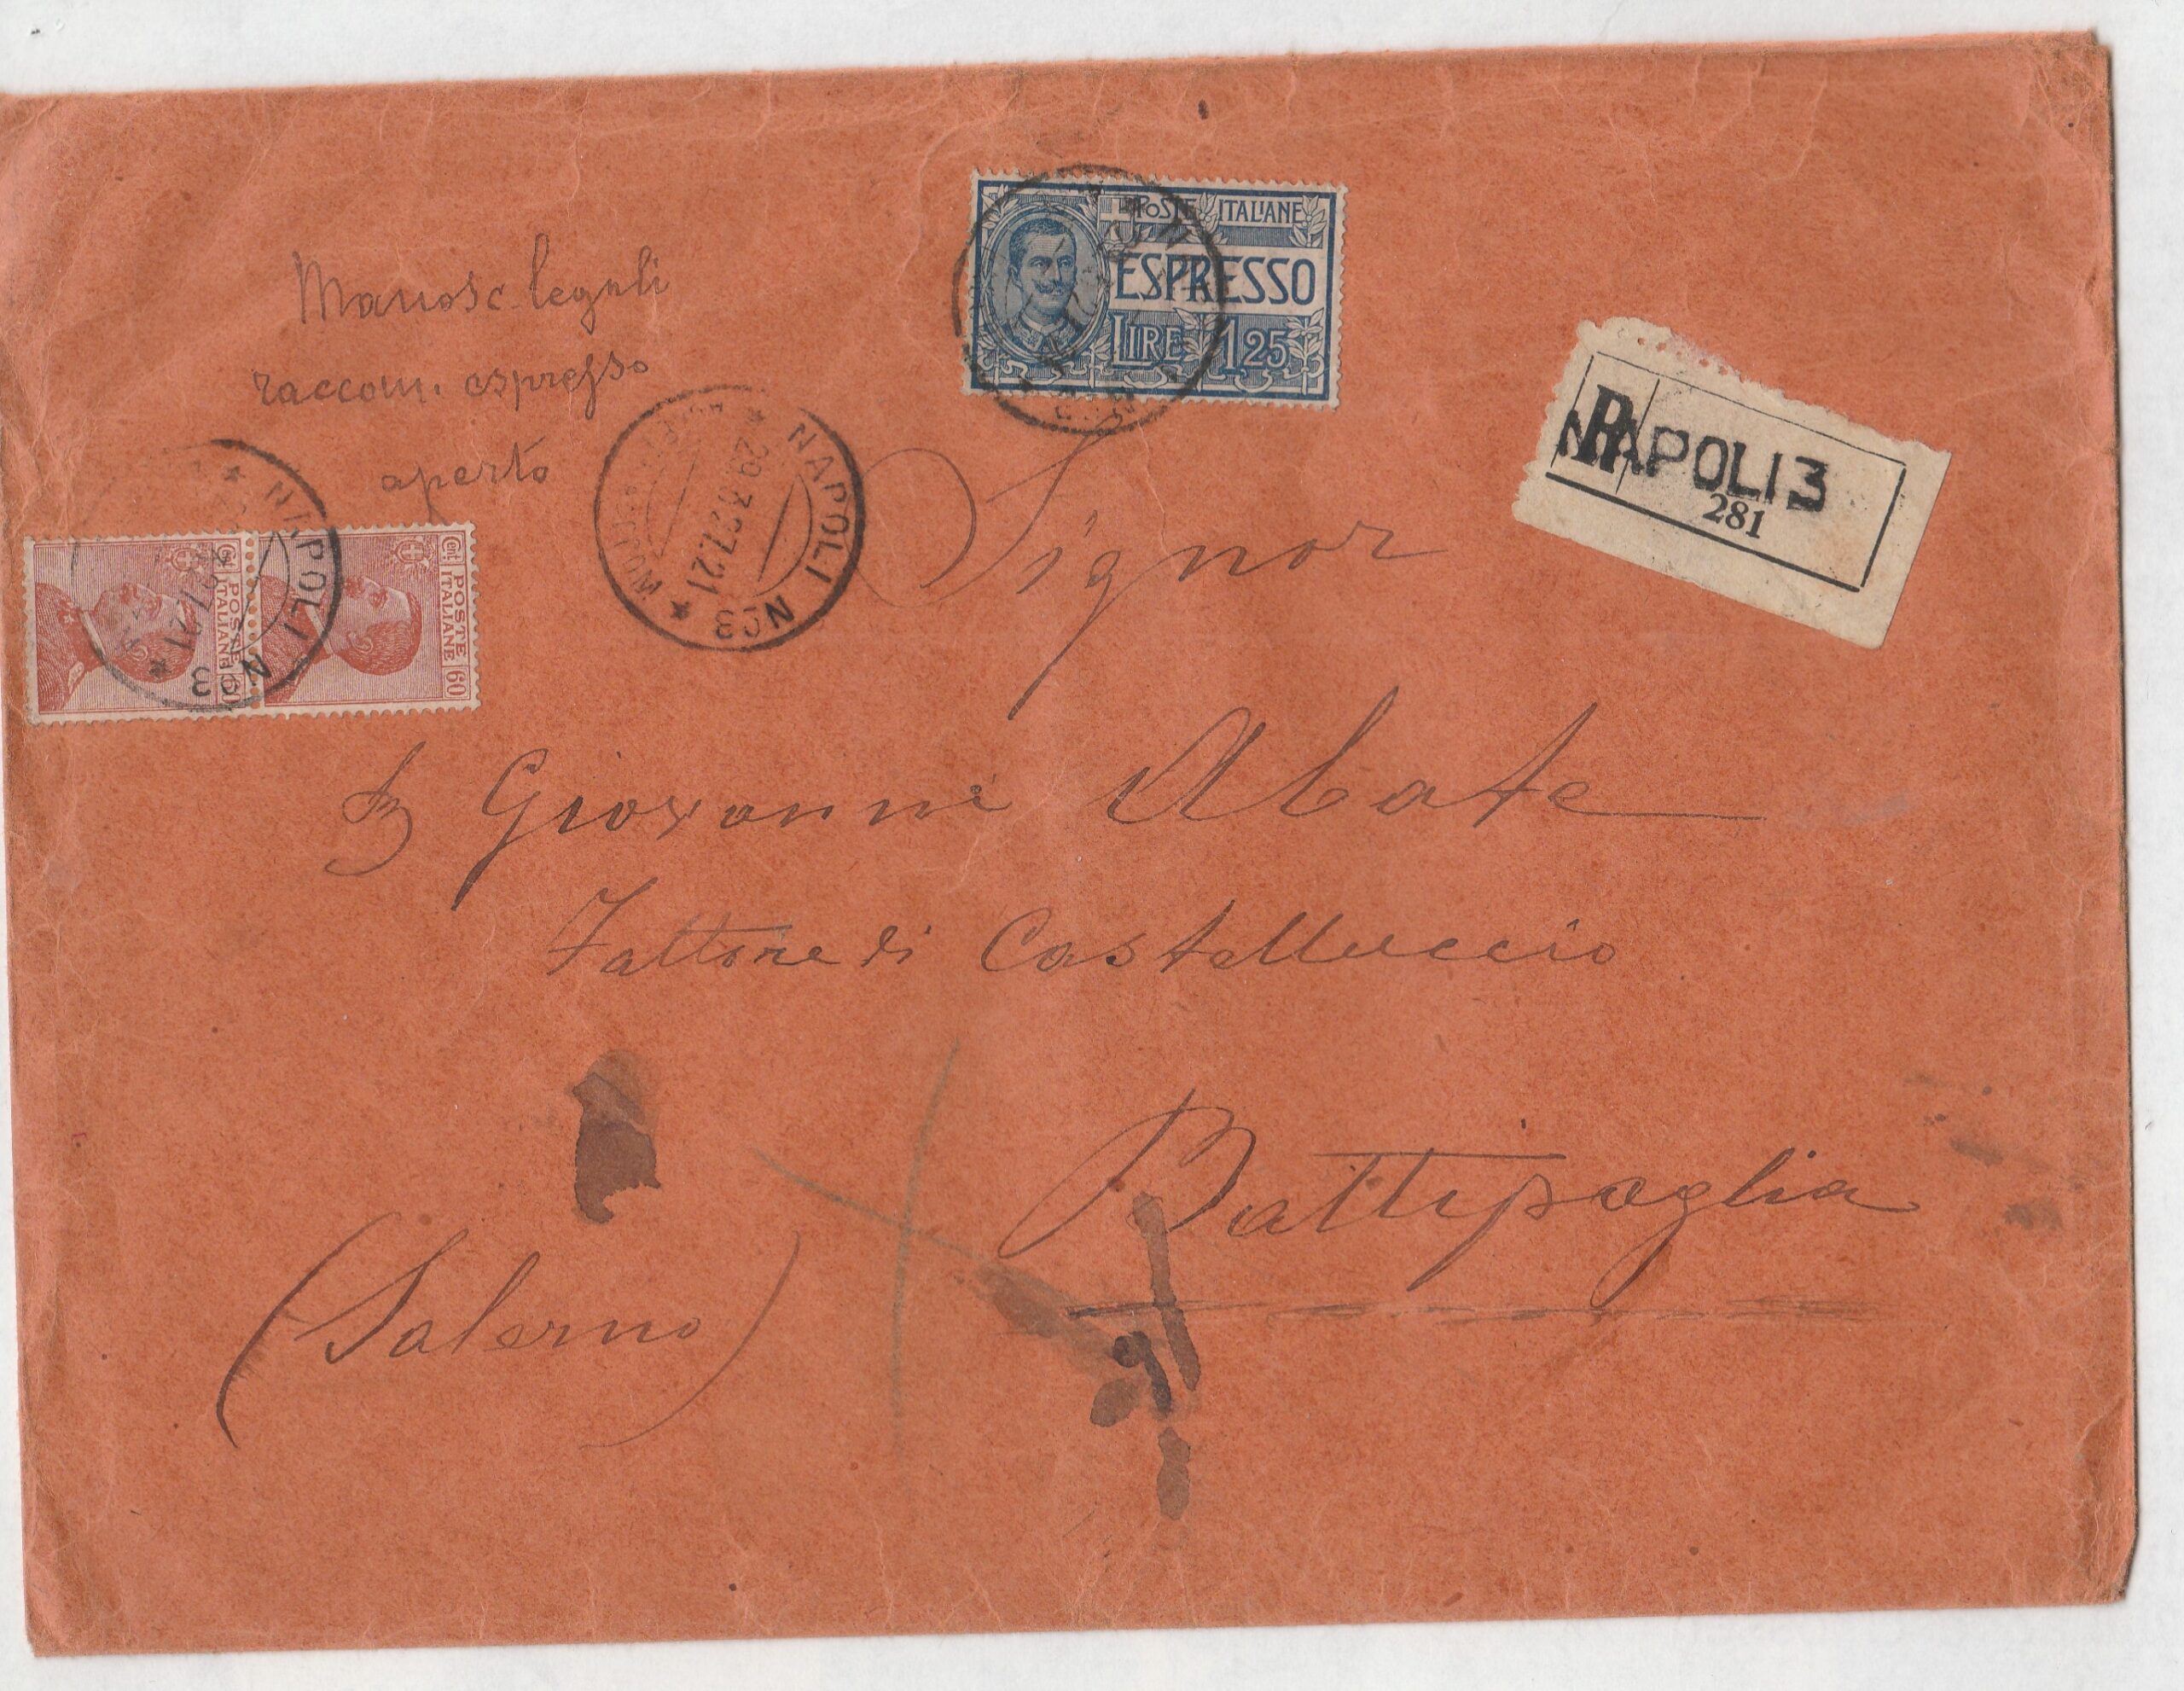 Manosc. legali
raccom. espresso
aperto
POSTE ITALIANE
ESPRESSO
LIRE 1,25
R
NAPOLI 3
281
Cent.
POSTE
ITALIANE
60
Cent.
POSTE
ITALIANE
60
NAPOLI N 3
NAPOLI No3
29.3.27.21
Signor
Giovanni Abate
Fattore di Castelluccio
Battipaglia
(Salerno)